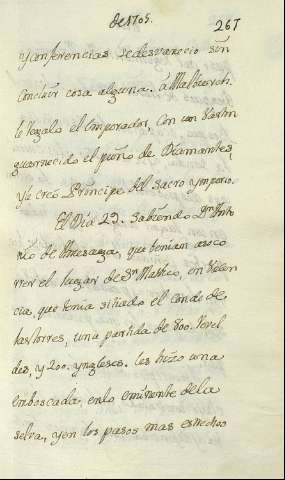 de 1705. 267
y conferencias se desvanecio sin
Concluir cosa alguna. à Malbourouh.
le regalo el Emperador, Con un Baston
guarnecido el puño de Diamantes,
y le creó Principe del Sacro ymperio.
El Dia 23. Sabiendo Dn. Anto
nio de Amezaga, que benian a soco
rrer el lugar de Sn. Matheo, en Valen
cia, que tenia sitiado el conde de
las torres, una partida de 800. Revel
des, y 200. yngleses. les hizo una
emboscada, en lo eminente de la
selva, y en los pasos mas estrechos